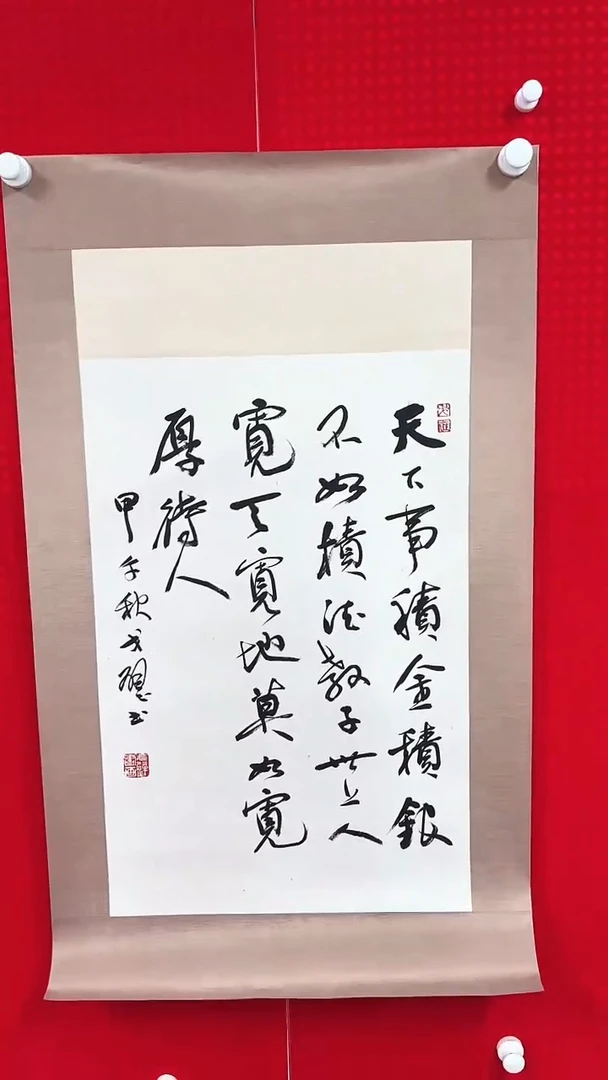 天下事積金積銀
不如積德教子世上人
寬天寬地莫如寬
厚待人
甲午秋